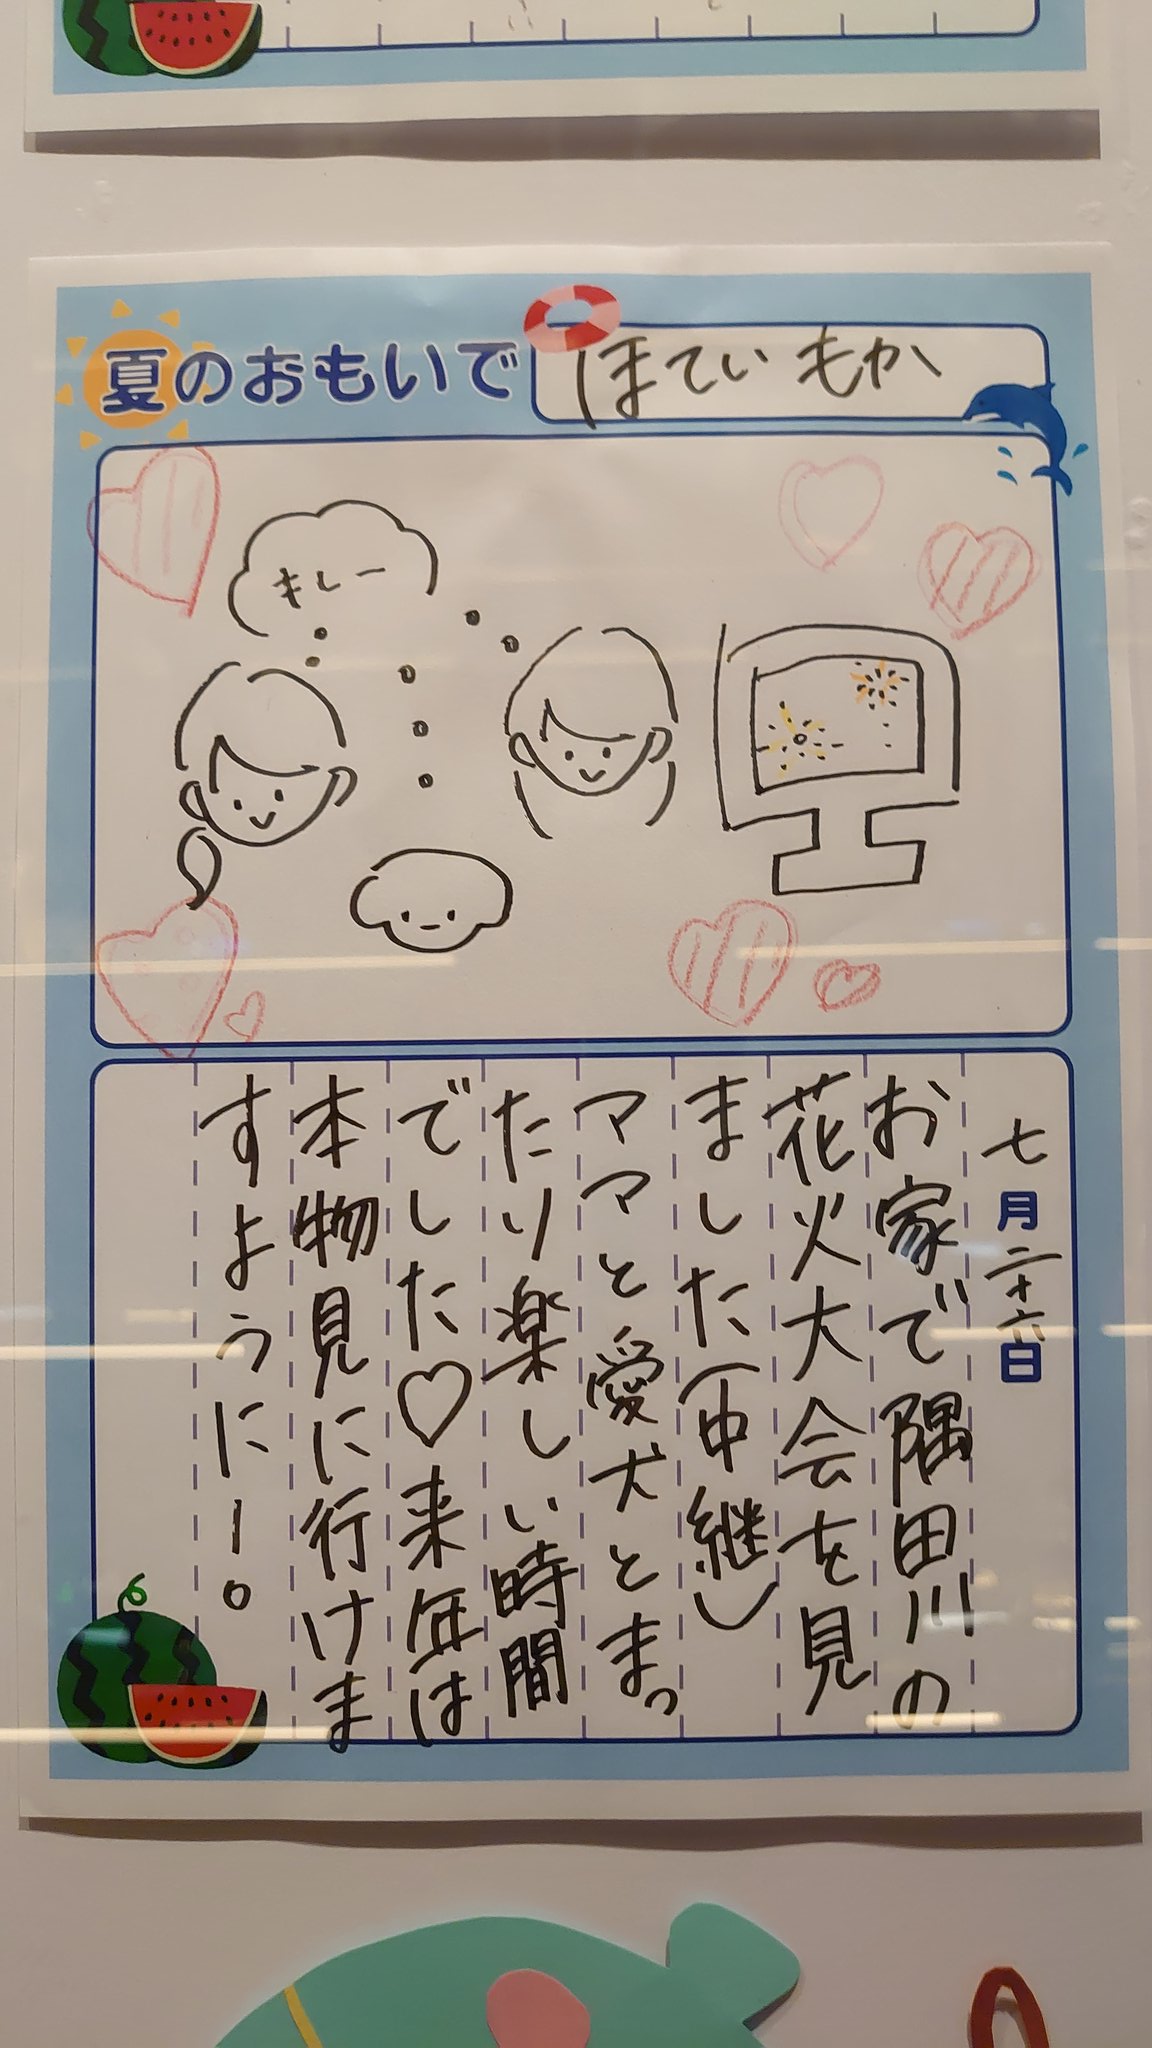 夏のおもいで
ほてい もか
キレー
七月二十六日
お家で隅田川の
花火大会を見
ました(中継)
ママと愛犬とまっ
たり楽しい時間
でした♡来年は
本物見に行けま
すように!。